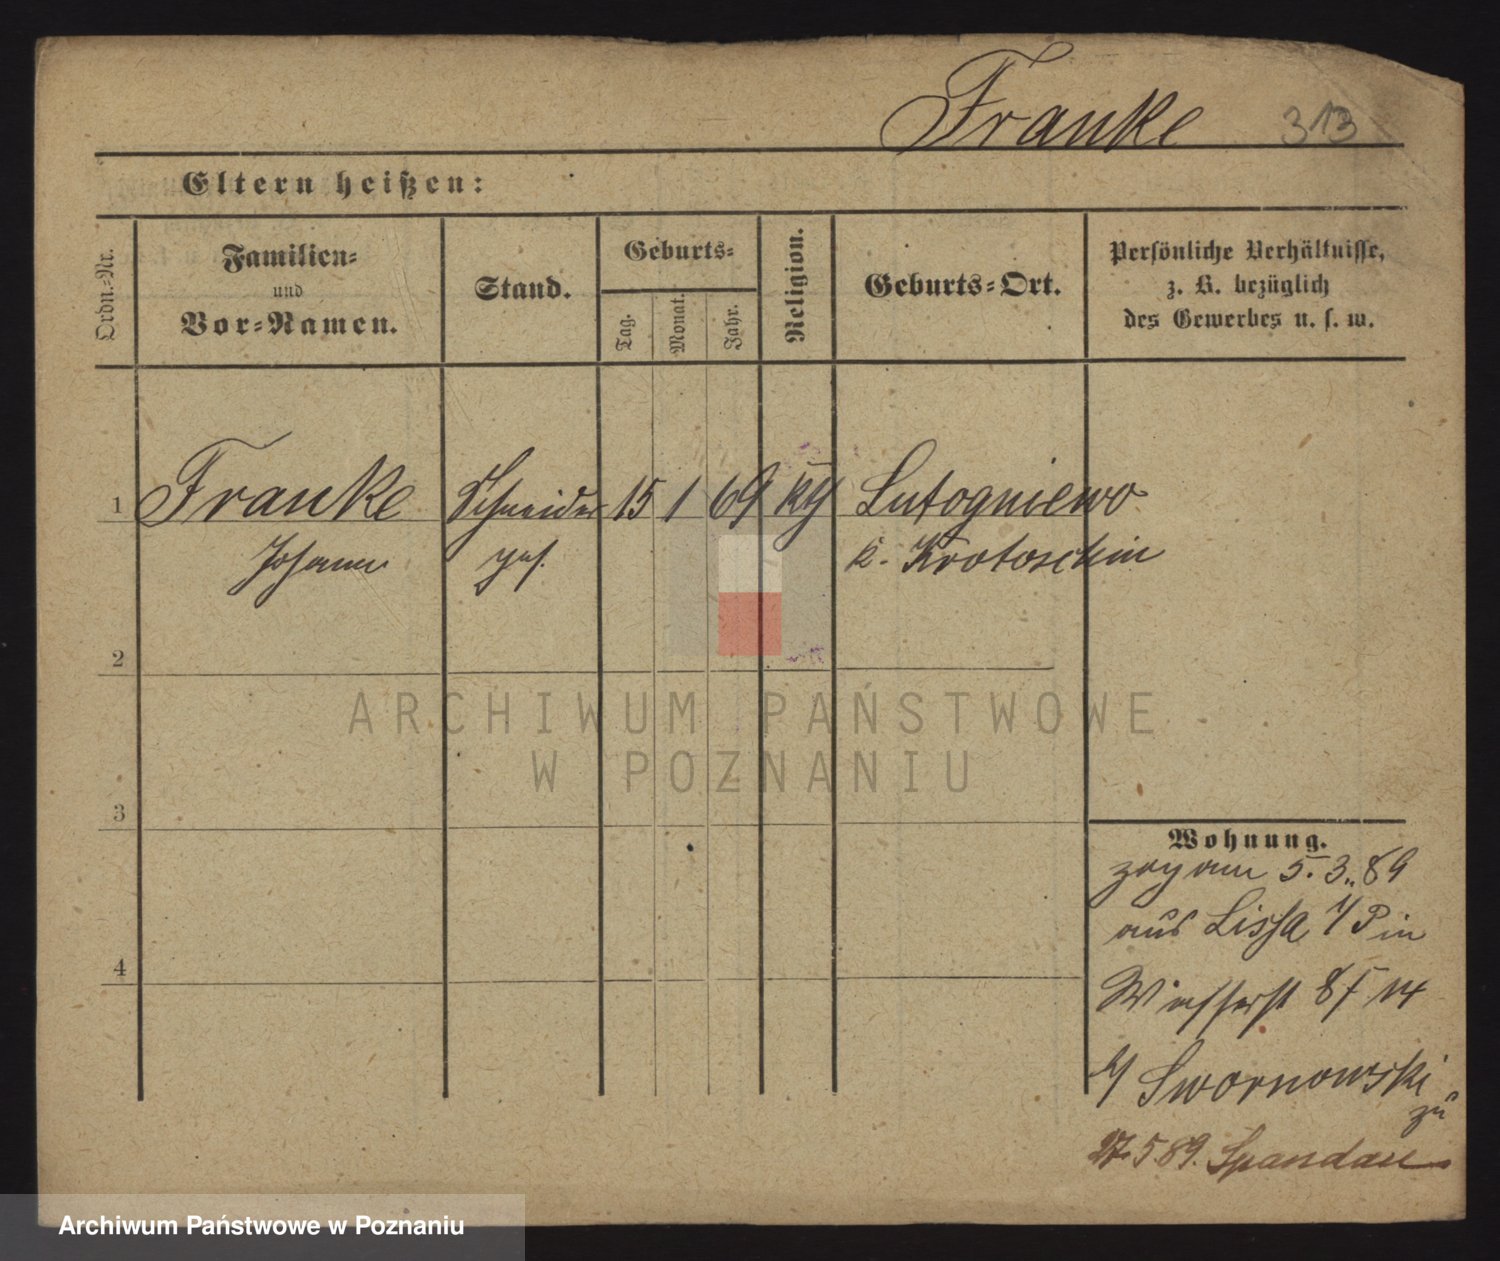 Franke 313
Eltern heißen:
Ordn.-Nr.
Familien-
und
Vor-Namen.
Stand.
Geburts-
Tag.
Monat.
Jahr.
Religion.
Geburts-Ort.
Persönliche Verhältnisse,
z. B. bezüglich
des Gewerbes u. s. w.
1 Franke Schneider 15 1 69 Lutogniewo
Johann ges. k. Krotoschin
2
3
4
Wohnung.
zog am 5. 3. 89
aus Lissa i/P in
14
b/ Swornowski
zu
27 5 89. Spandau
ARCHIWUM PAŃSTWOWE
W POZNANIU
Archiwum Państwowe w Poznaniu